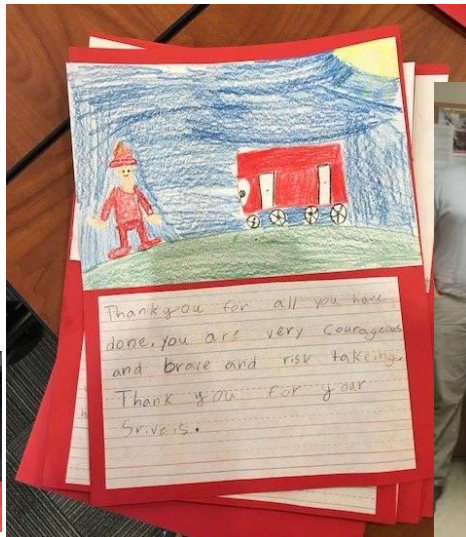 Thankyou for all you have
done. you are very courageous
and brave and risk takeing.
Thank you for your
Sriveis.